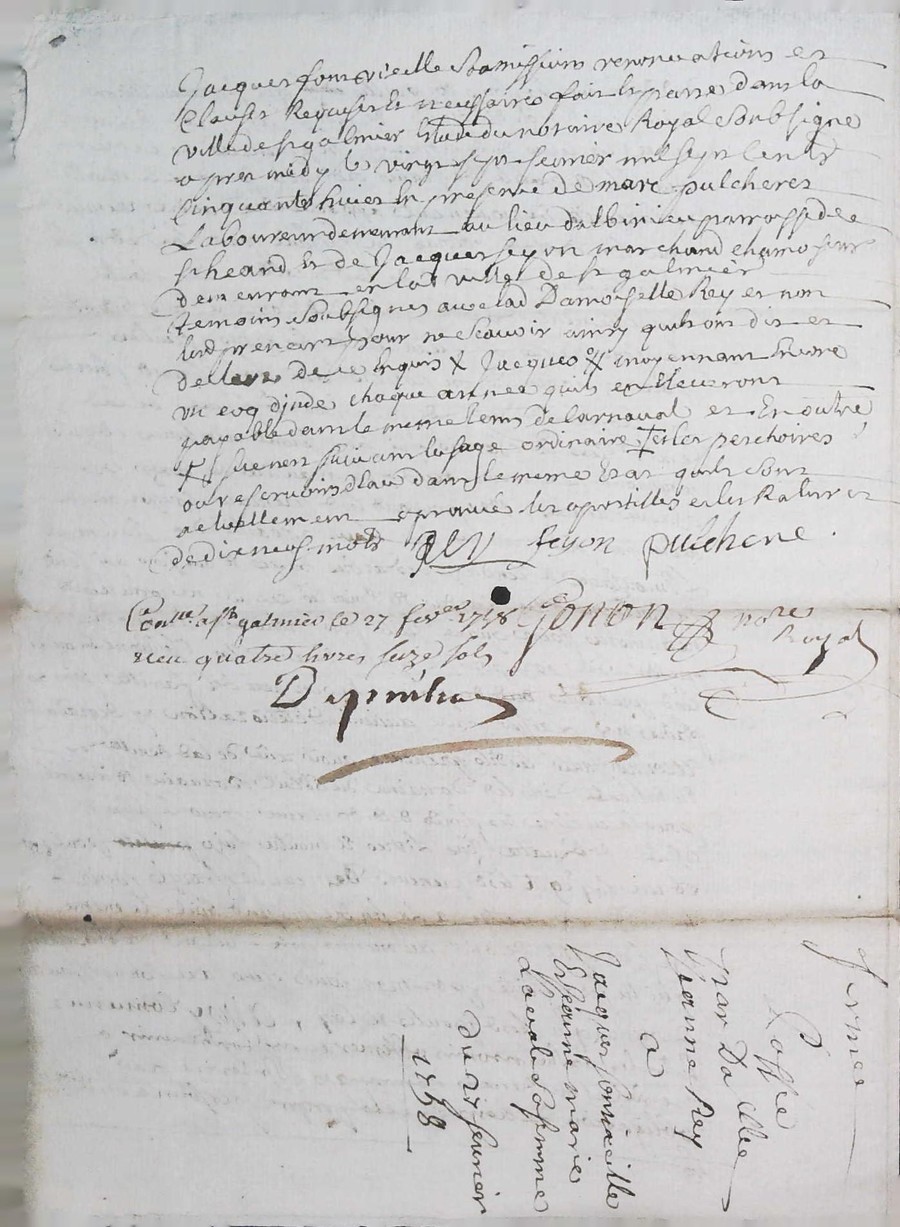 Jacques fontvieille Soamissions renonciations et
Clauses Requises & necessaires fait & passé dans la
ville de st galmier Etude du notaire Royal Soubsigné
apres midy le vingt sept fevrier mil sept Cents
Cinquante huict En presence de marc pulcheret
Laboureur demeurant au lieu d'albinieu parroisse de
st heand & de Jacques feyon marchand chamoiseur
demeurant en lad ville de st galmier
temoins Soubsignés avec lad Damoiselle Rey et non
lesd preneurs pour ne Scavoir ainsy quils ont dit et
de ce Enquis X Jacques X moyennant Encore
un coq d'inde chaque année quils en Eleveront
payable dans le meme tems de Carnaval et En outre
suivant lusage ordinaire et les perchoires
ou reservoirs d'eau dans le meme Etat quils Sont
actuellement aprouvé les apostilles et les Ratures
de dix neuf mots Rey feyon pulchere
Conllé a st galmier le 27 fevr 1758 Gonon nore Royal
receu quatre livres seize sols
ferme
Passée
par Dalle
Jeanne Rey
a
Jacques fontvieille
& Jeanne marie
Laval Sa femme
du 27 fevrier
1758